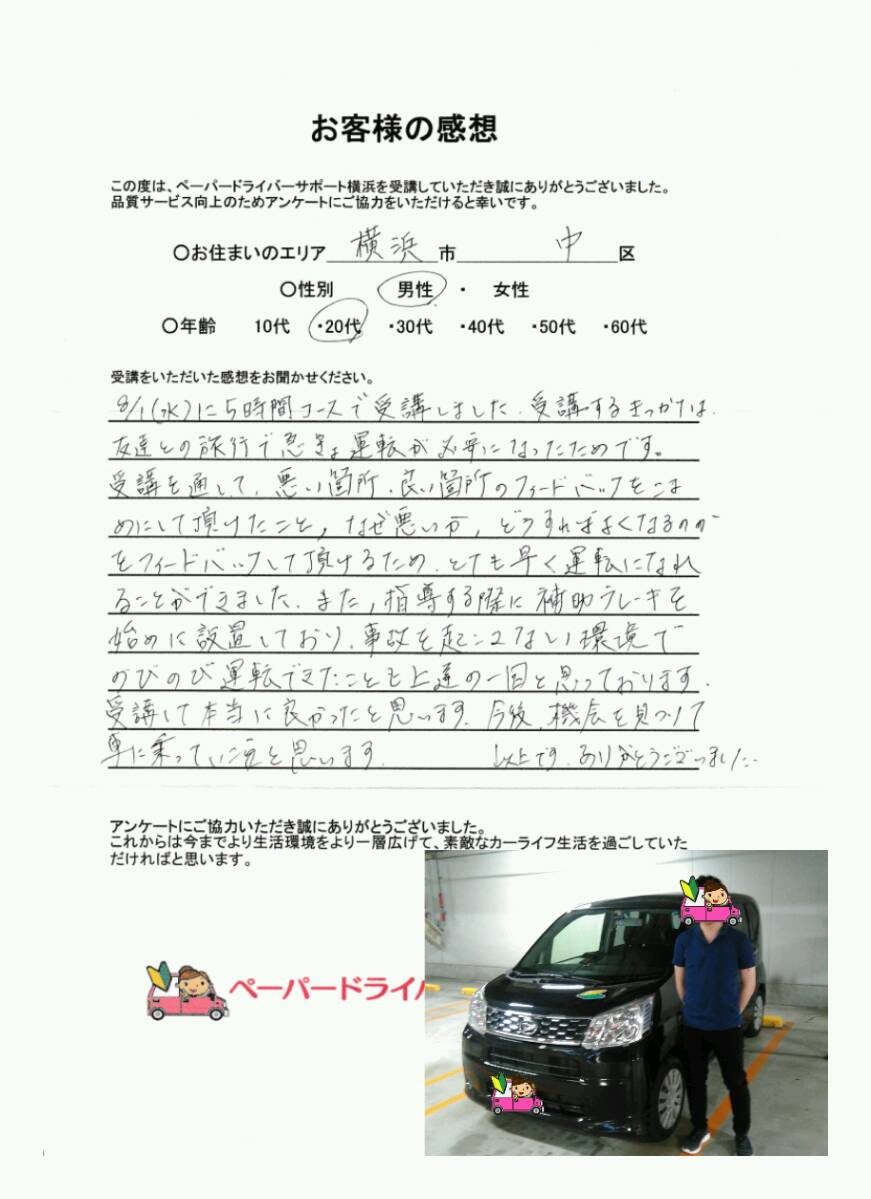 お客様の感想
この度は、ペーパードライバーサポート横浜を受講していただき誠にありがとうございました。
品質サービス向上のためアンケートにご協力をいただけると幸いです。
〇お住まいのエリア 横浜 市 中 区
〇性別 男性 ・ 女性
〇年齢 10代 ・20代 ・30代 ・40代 ・50代 ・60代
受講をいただいた感想をお聞かせください。
8/1(水)に5時間コースで受講しました。受講するきっかけは、
友達との旅行で急きょ運転が必要になったためです。
受講を通して、悪い箇所、良い箇所のフィードバックをこま
めにして頂けたこと、なぜ悪いか、どうすればよくなるのか
をフィードバックして頂けるため、とても早く運転になれ
ることができました。また、指導する際に補助ブレーキを
始めに設置しており、事故を起こさない環境で
のびのび運転できたことも上達の一因と思っております。
受講して本当に良かったと思います。今後、機会を見つけて
車に乗っていこうと思います。 以上です。ありがとうございました。
アンケートにご協力いただき誠にありがとうございました。
これからは今までより生活環境をより一層広げて、素敵なカーライフ生活を過ごしていた
だければと思います。
ペーパードライバ